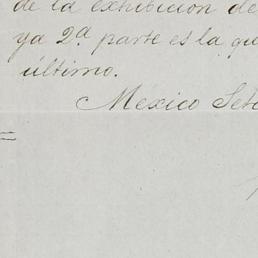 de la exhibicion de
ya 2.ª parte es la que
último.
Mexico Set